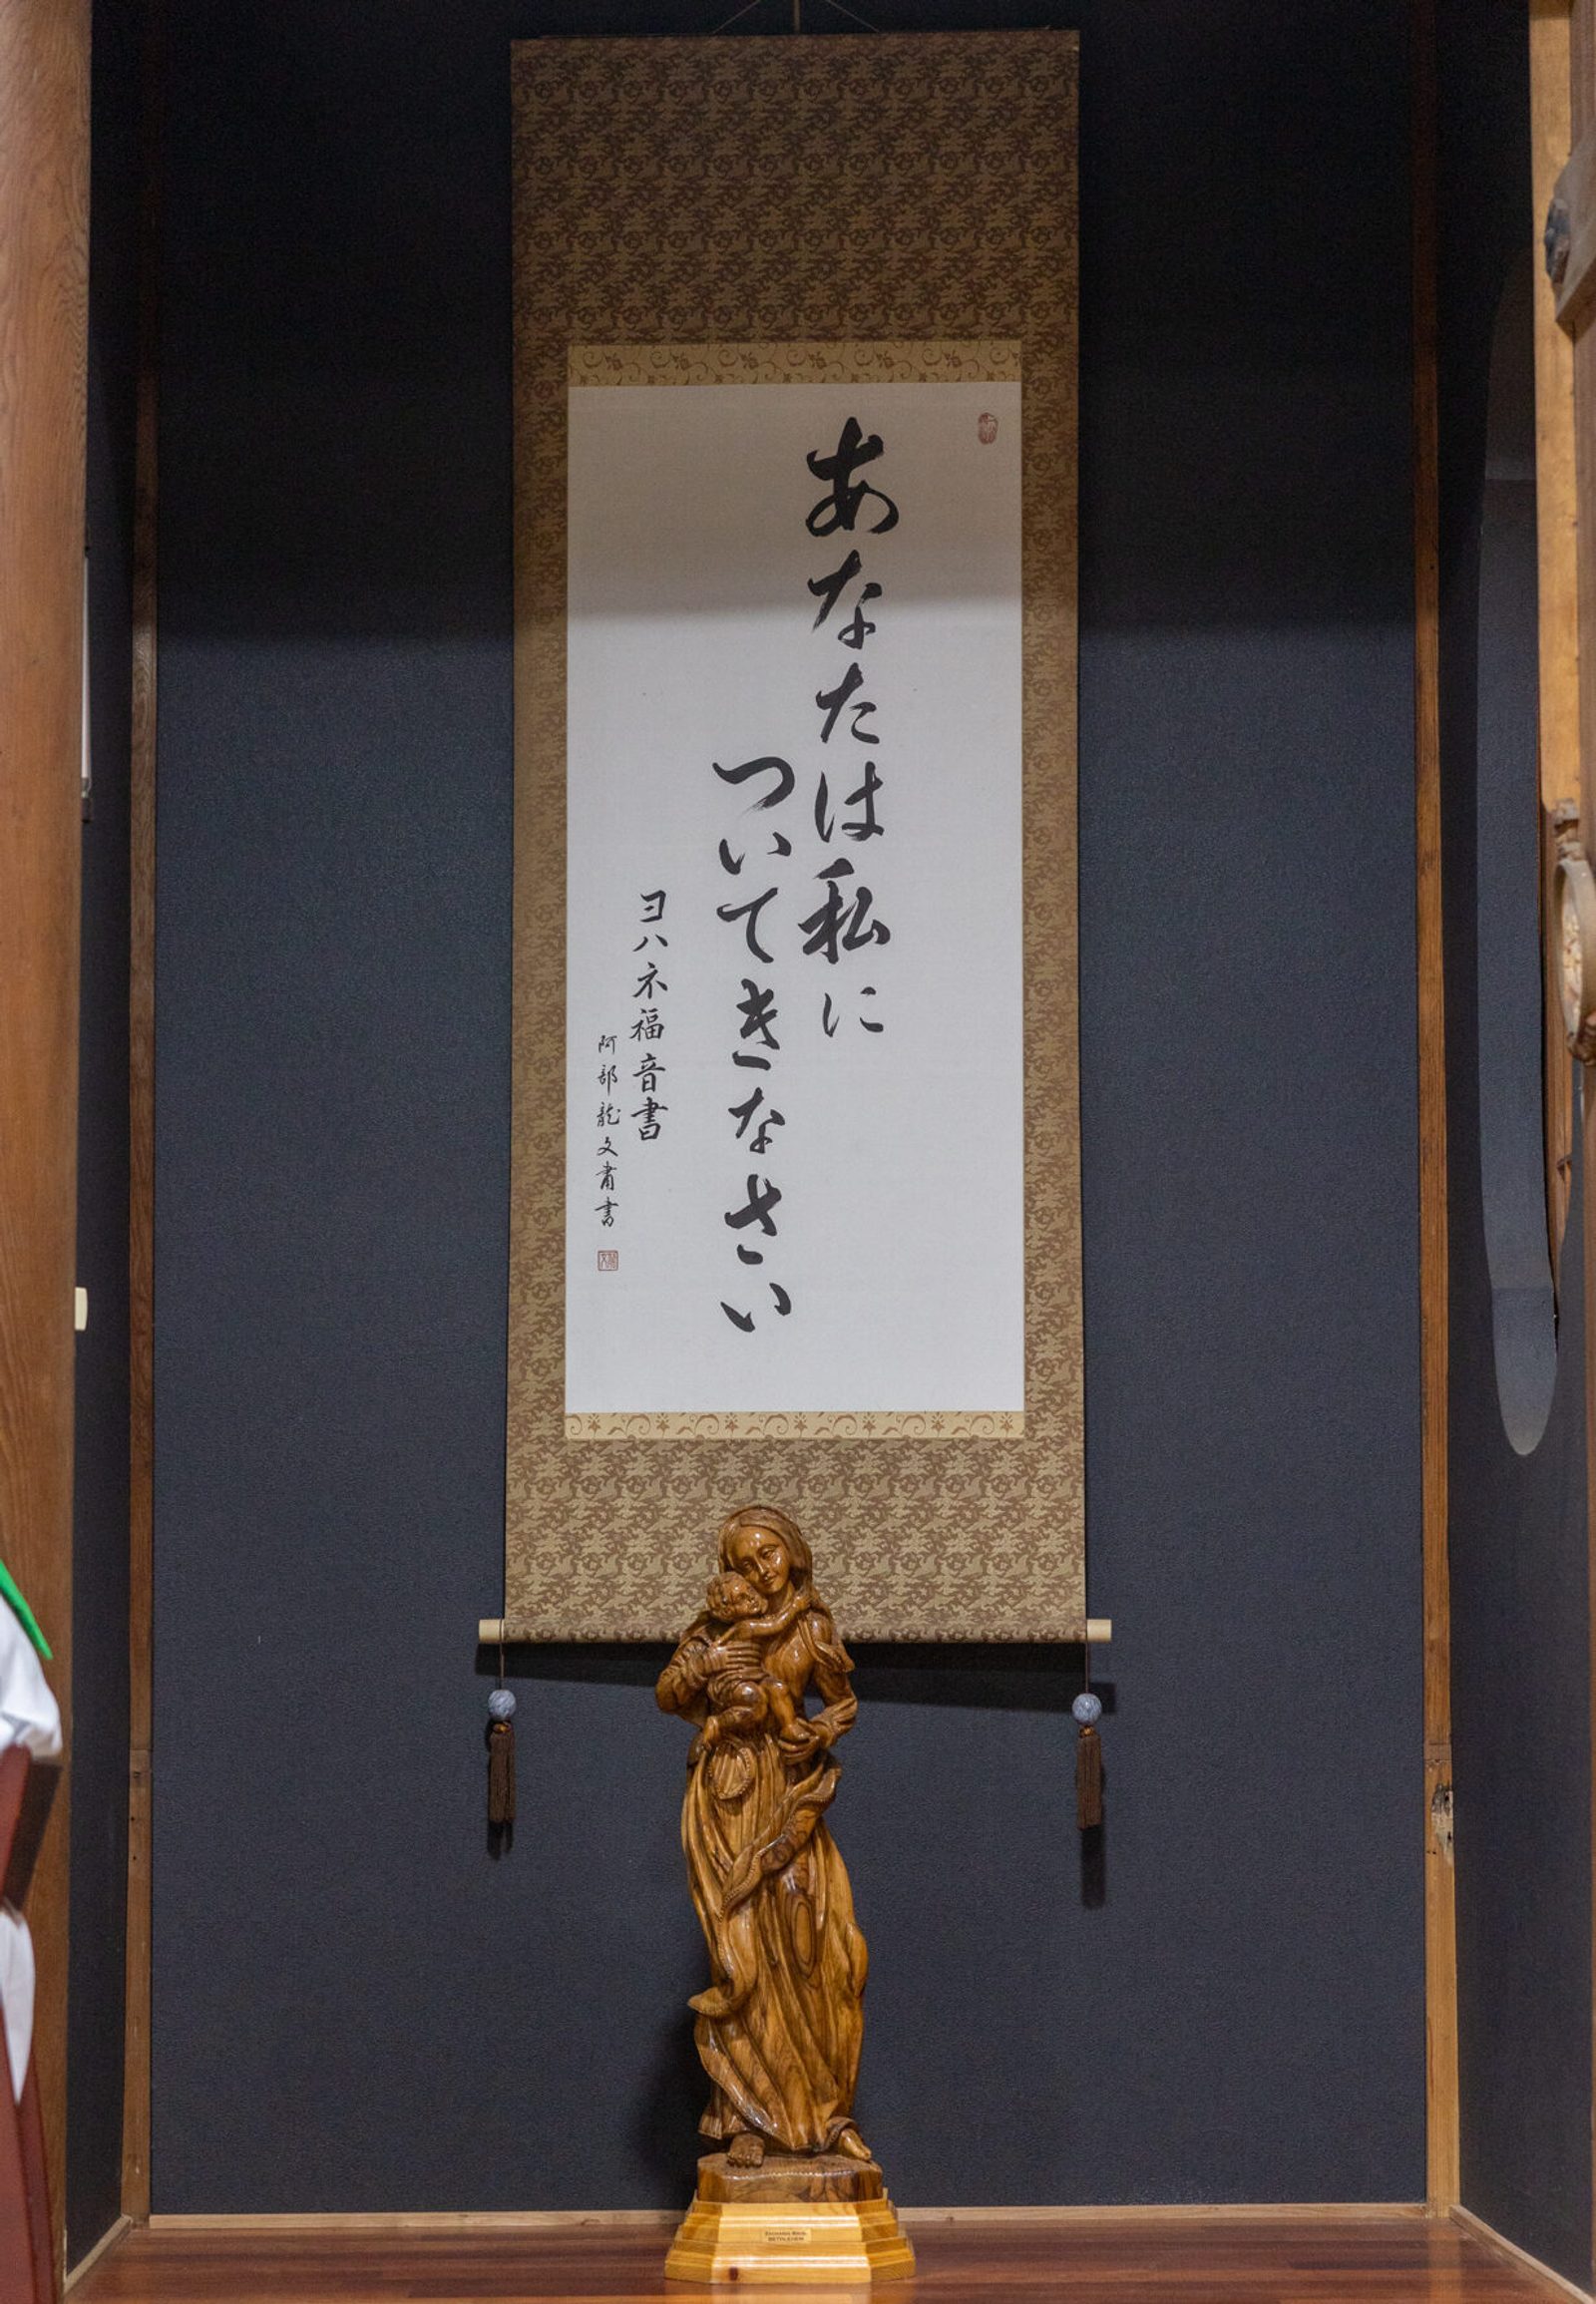 あなたは私に
ついてきなさい
ヨハネ福音書
阿部龍文粛書
BETHLEHEM